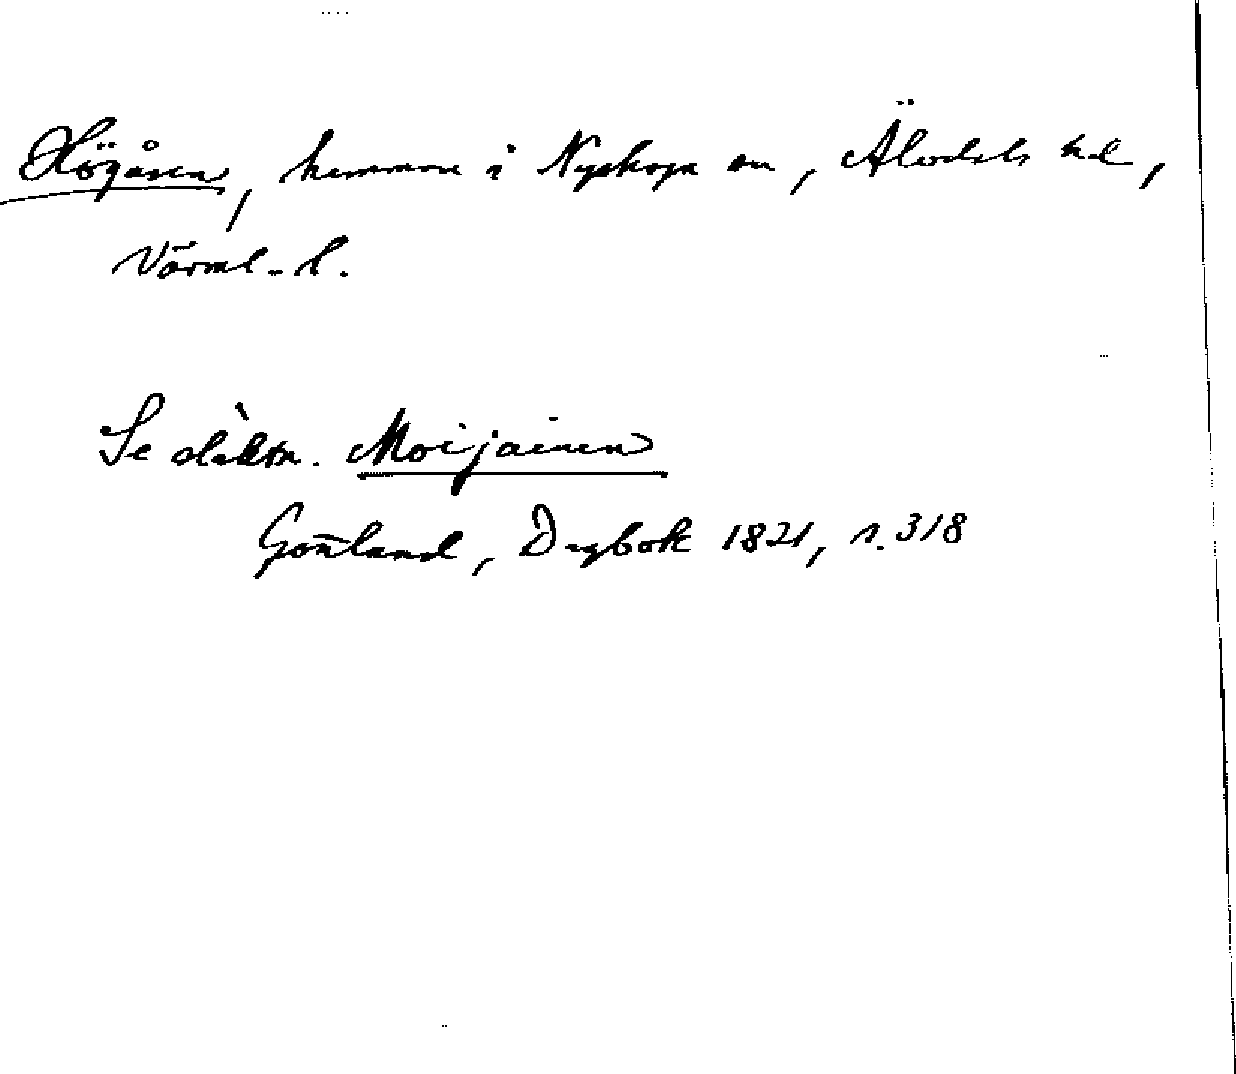 Högåsen, hemman i Nyskoga sn, Älvdals hd,
Värml. l.
Se släktn. Moijainen
Gottlund, Dagbok 1821, s. 318